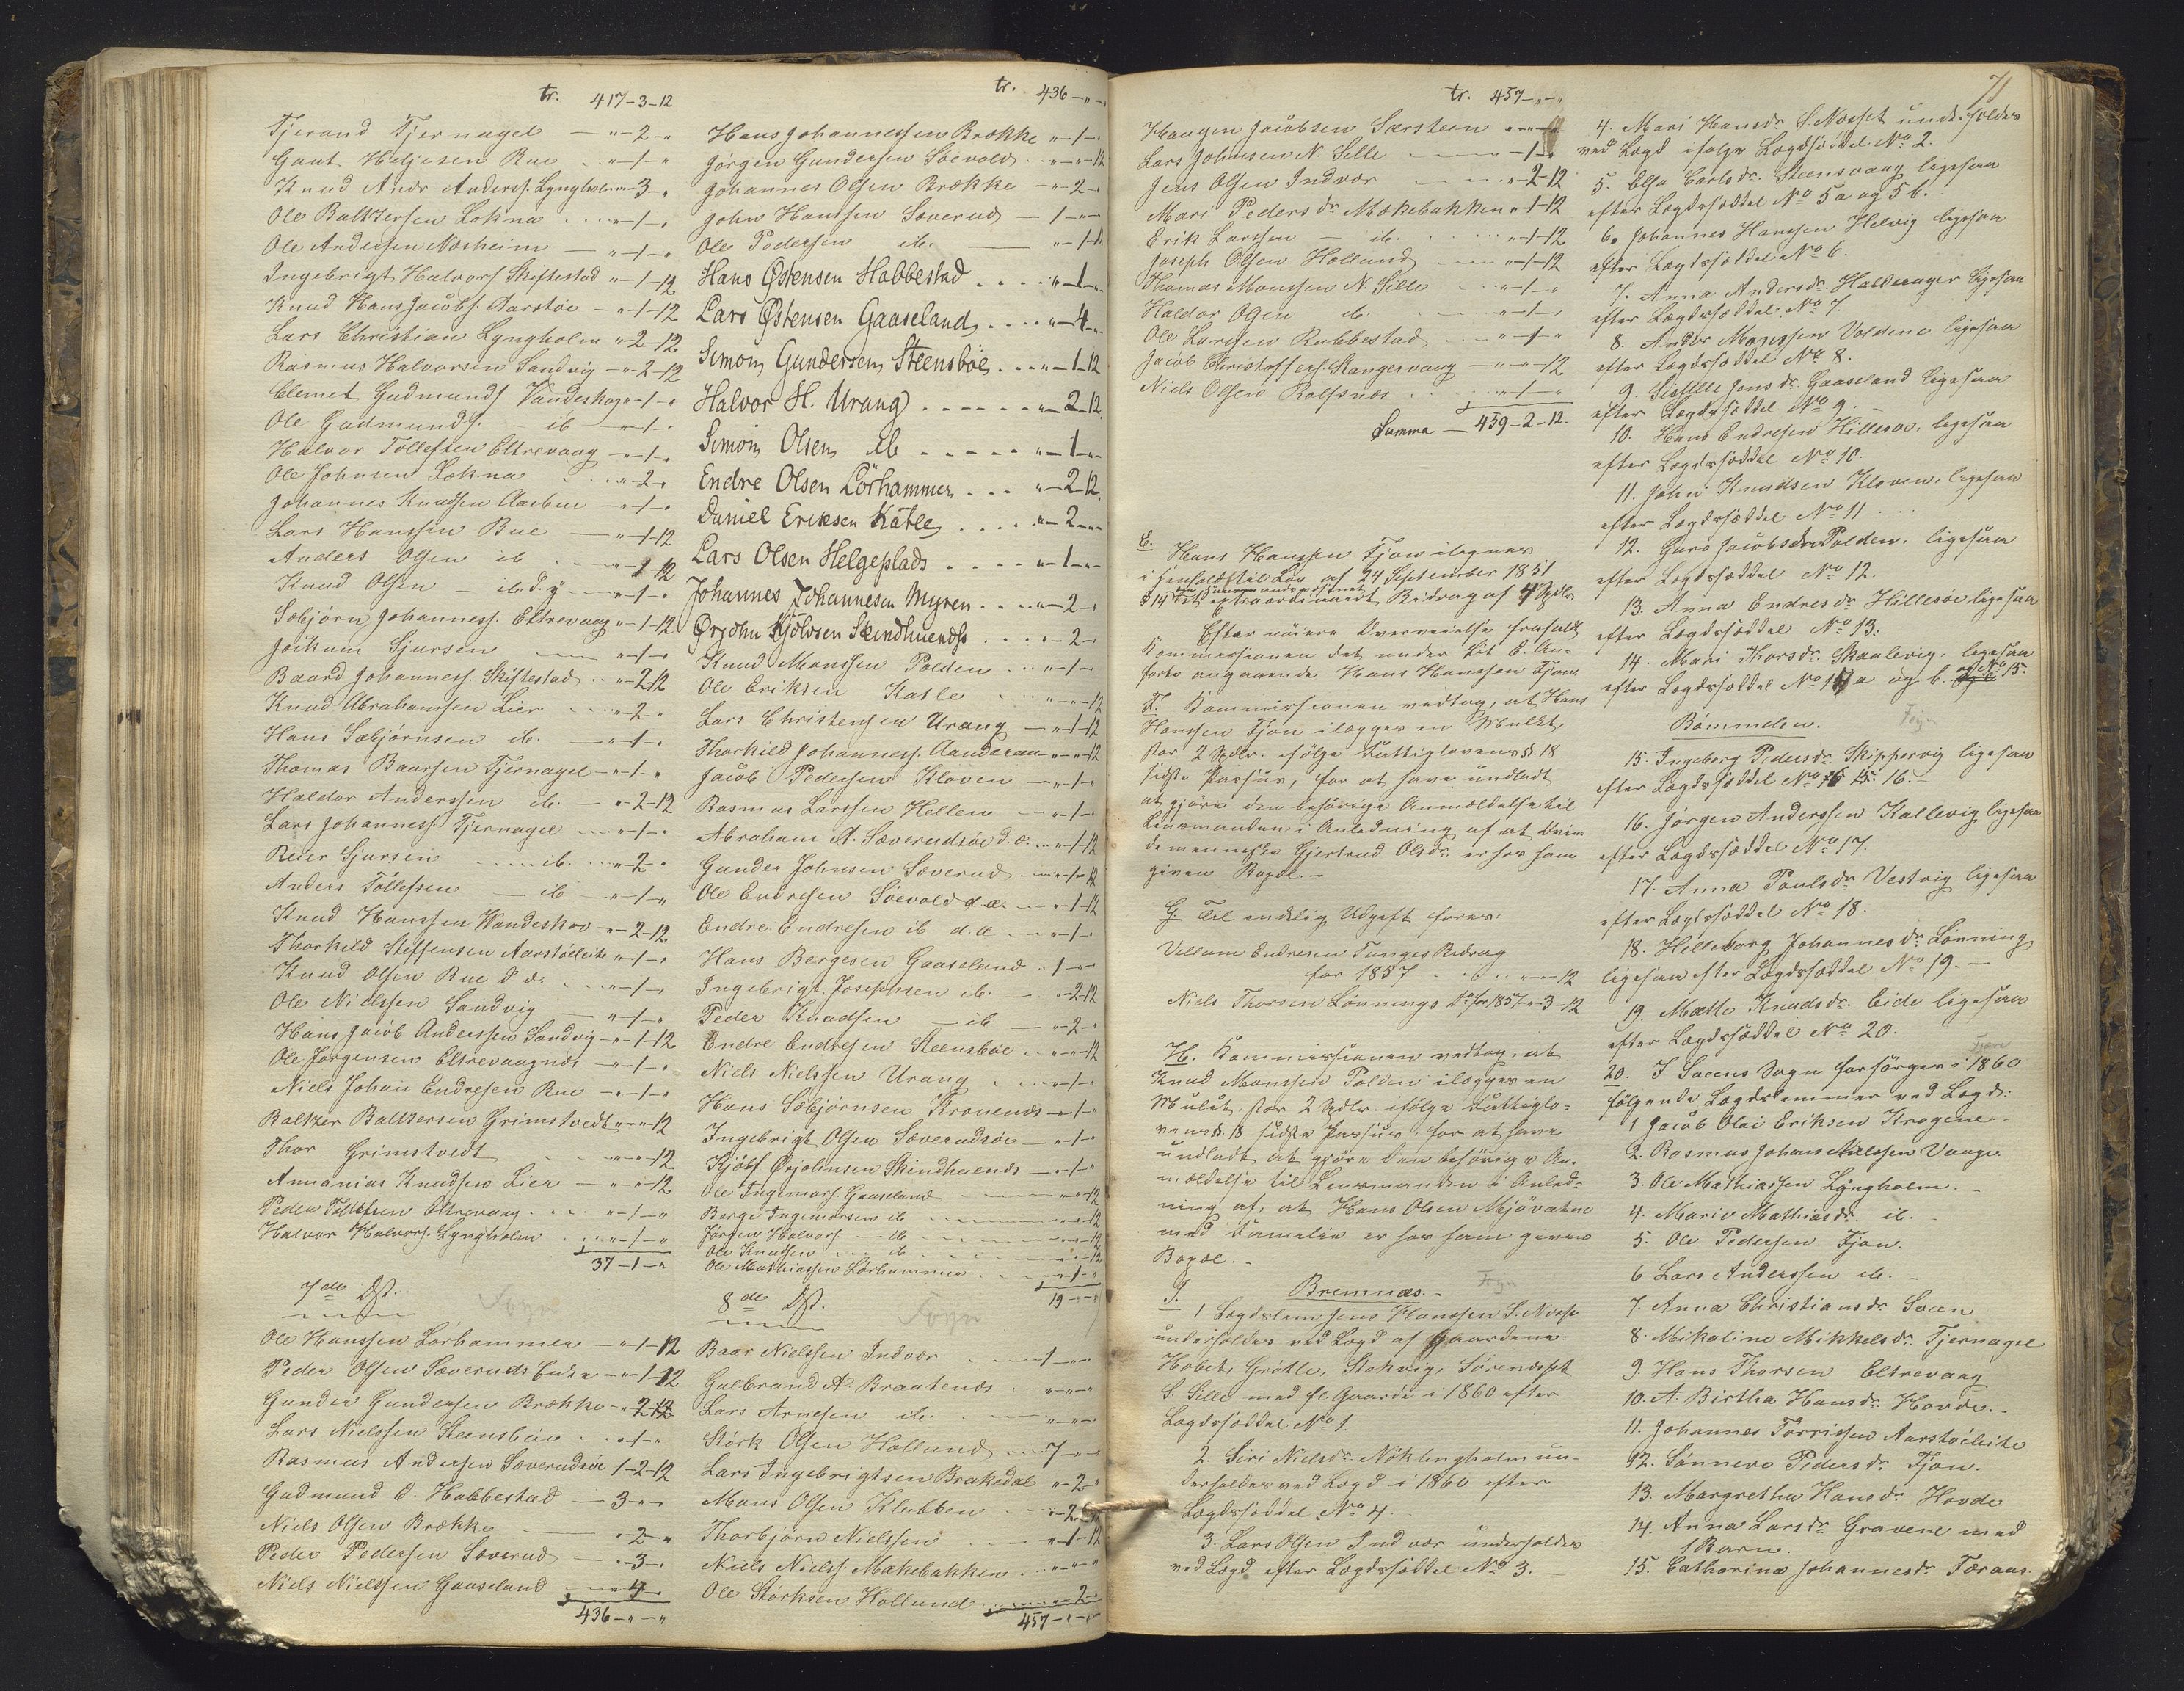 tr. 417-3-12
Tjerand Tjernagel - „-2-„
Gaut Heljesen Bue - „-1-„
Knud Andr Anderss. Lyngholm „-3-„
Ole Baltzersen Lokna - „-1-„
Ole Andersen Næsheim - „-1-„
Ingebrigt Halvors Skiftestad „-1-12
Knud Hans Jacobs. Aarstöe - „-1-12
Lars Christian Lyngholm „-2-12
Rasmus Halvorsen Sandvig - „-2-12
Clemet Gudmunds Vandeskog „-1-„
Ole Gudmunds. - ib - „-1-„
Halvor Tollefsen Eltrevaag - „-1-„
Ole Johnsen Lokna - „-2-„
Johannes Knudsen Aarbue - „-1-„
Lars Hanssen Bue - „-1-12
Anders Olsen ib - „-1-12
Knud Olsen - ib. d. y. - „-1-„
Sebjörn Johanness. Eltrevaag „-1-12
Joikum Sjursen - „-1-„
Baard Johanness. Skiftestad - „-2-12
Knud Abrahamsen Lier - „-2-„
Hans Sæbjörnsen ib. - „-1-„
Thomas Baarsen Tjernagel - „-1-„
Haldor Anderssen ib. - „-2-12
Lars Johanness. Tjernagel - „-1-„
Reier Sjursen - ib. - „-2-„
Anders Tollefsen - ib - „-1-„
Knud Hanssen Wandeskov - „-2-12
Thorkild Steffensen Aarstöeleite „-1-„
Knud Olsen Bue d. æ. - „-1-„
Ole Nielssen Sandvig - „-1-„
Hans Jacob Anderssen Sandvig - „-1-12
Ole Jørgensen Eltrevaagnes - „-1-„
Niels Johan Endresen Bue - „-1-„
Baltzer Baltzersen Grimstvedt „-„-12
Thor Grimstvedt - „-„-12
Annanias Knudsen Lier - „-„-12
Peder Tollefsen Eltrevaag - „-1-„
Halvor Halvors. Lyngholm - „-1-„
37-1-„
7de Dst.
Sogn
Ole Hanssen Lørhammer - „-1-12
Peder Olsen Sæveruds Enke - „-1-12
Gunder Gundersen Brække - „-2-12
Lars Nielssen Steensböe - „-1-„
Rasmus Andersen Sæverudsöe 1-2-12
Gudmund C. Habbestad - 3-„-„
Niels Olsen Brække - „-2-„
Peder Pedersen Sæverud - „-3-„
Niels Nielssen Gaaseland - „-4-„
436-„-„
tr. 436-„-„
Hans Johannessen Brække „-1-„
Jørgen Gundersen Söevold - „-„-12
Johannes Olsen Brække - „-2-„
John Hanssen Sæverud - 1-„-„
Ole Pedersen ib. - „-1-„
Hans Østensen Habbestad . . . . „-1-„
Lars Østensen Gaaseland . . . . „-4-„
Simon Gundersen Steensböe . . . „-1-12
Halvor H. Urang . . . . . . „-2-12
Simon Olsen ib . . . . . „-1-„
Endre Olsen Lörhammer . . . „-2-12
Daniel Eriksen Katle . . . . „-2-„
Lars Olsen Helgeplads . . . . „-1-„
Johannes Johannesen Myren . . . . „-2-„
Ørjohn Kjölvsen Skindhuends . . . . „-2-„
Knud Monssen Polden . . . „-1-„
Ole Eriksen Katle „-„-12
Lars Christensen Urang - „-1-12
Thorkild Johanness. Aanderaa „-„-12
Jacob Pedersen Kloven - „-1-„
Rasmus Larssen Hellen - „-1-„
Abraham A. Sæverudsöe d. æ. - „-1-12
Gunder Johnsen Sæverud - „-1-12
Ole Endresen Söevold d. æ. - „-1-12
Endre Endresen ib d. æ. - „-1-„
Hans Bergesen Gaaseland - 1-„-„
Ingebrigt Josephsen ib. - „-2-12
Peder Knudsen - ib - „-2-„
Endre Endresen Steensböe - „-„-12
Niels Nielssen Urang - „-1-„
Hans Sæbjörnsen Kronends - „-1-„
Ingebrigt Olsen Sæverudsöe - „-1-„
Kjölf Ørjohnsen Skindhuends - „-1-„
Ole Ingemars. Gaaseland - „-„-12
Berge Ingemarsen ib - „-„-12
Jørgen Halvors - ib - „-„-12
Ole Knudsen - ib - „-„-12
Ole Mathiassen Lørhammer - „-1-„
19-„-„
8de Dst.
Sogn
Baar Nielssen Indvær - „-1-„
Gulbrand A. Braatends - „-„-„
Lars Arnesen ib. - „-„-„
Störk Olsen Hollund - „-7-„
Lars Ingebrigtsen Brakedal „-2-„
Mons Olsen Klubben - „-2-„
Thorbjörn Nielssen - „-1-12
Niels Niels Mækebakken - „-„-„
Ole Störksen Hollund - „-2-„
457-„-„
tr. 457-„-„
Haagen Jacobsen Særsteen „-„-„
Lars Johnsen N. Selle - „-1-„
Jens Olsen Indvær - „-2-12
Mari Pedersdr Mækebakken „-1-12
Erik Larssen - ib. - „-1-12
Joseph Olsen Hollund - „-1-12
Thomas Monssen N. Selle - „-1-„
Haldor Olsen ib. - „-1-„
Ole Larssen Rubbestad - „-1-„
Jacob Christoffers. Stangervaag - „-„-12
Niels Olsen Rolfsnes - „-1-„
Summa - 459-2-12.
E. Hans Hanssen Fjon ilegnes
i Henhold til Lov af 24 September 1851
§ 14 et extraordinairt Bidrag af 4 Spdlr
Efter nöiere Overveielse frafaldt
Kommissionen det under Lit E. An-
førte angaaende Hans Hanssen Fjon
F. Kommissionen vedtog, at Hans
Hanssen Fjon ilægges en Mulkt,
stor 2 Spdlr. ifölge Fattiglovens §. 18
sidste Passus, for at have undladt
at gjöre den behörige Anmeldelse til
Lensmanden i Anledning af at Qvin-
demenneske Gjertrud Olsdr. er hos ham
given Bopæl. -
G. Til endelig Udgift føres:
Villum Endresen Tunges Bidrag
for 1857 - „-„-12
Niels Thorsen Lønnings do for 1857 „-3-12
H. Kommissionen vedtog, at
Knud Monssen Polden ilægges en
Mulct, stor 2 Spdlr. ifölge Fattiglo-
vens §. 18 sidste Passus, for at have
undladt at gjöre den behörige An-
meldelse til Lensmanden i Anled-
ning af, at Hans Olsen Mjövatne
med Familie er hos ham given
Bopæl. -
Bremnæs. -
Sogn
I.
1 Lægdslem Jens Hanssen S. Næsse
underholdes ved Lægd af Gaardene:
Habet, Grötle, Stokvig, Sörenæsset
S. Selle med fl. Gaarde i 1860 efter
Lægdssæddel No 1.
2. Siri Nielsdr. Nöklingholm un-
derholdes ved Lægd i 1860 efter
Lægdssæddel No 4.
3. Lars Olsen Indvær underholdes
ved Lægd efter Lægdssæddel No 3. -
71
4. Mari Hansdr. S. Næsset underholdes
ved Lægd ifølge Lægdssæddel No 2.
5. Elsa Carlsdr. Steensvaag ligesaa
efter Lægdssæddel No 5a og 5b.
6. Johannes Hanssen Helvig ligesaa
efter Lægdssæddel No 6.
7. Anna Andersdr. Halderager ligesaa
efter Lægdssæddel No 7.
8. Anders Monssen Voldene ligesaa
efter Lægdssæddel No 8.
9. Sissille Jonsdr. Gaaseland ligesaa
efter Lægdssæddel No 9. -
10. Hans Endresen Hillesöe, ligesaa
efter Lægdssæddel No 10.
11. John Knudsen Kloven, ligesaa
efter Lægdssæddel No 11
12. Guro Jacobsdr Polden, ligesaa
efter Lægdssæddel No 12.
13. Anna Endresdr Hillesöe ligesaa
efter Lægdssæddel No 13.
14. Mari Thorsdr. Skaalevig, ligesaa
efter Lægdssæddel No 14 a og b. og No 15.
Bömmelen.
Sogn
15. Ingeborg Pedersdr. Skippervig ligesaa
efter Lægdssæddel No 16. -
16. Jørgen Anderssen Kallevig ligesaa
efter Lægdssæddel No 17.
17. Anna Poulsdr Vestvig ligesaa
efter Lægdssæddel No 18.
18. Helleborg Johannesdr. Lønning
ligesaa efter Lægdssæddel No 19. -
19. Mætte Knudsdr. Eide ligesaa
efter Lægdssæddel No 20.
20. I Sveens Sogn forsörges i 1860
følgende Lægdslemmer ved Lægd:
1 Jacob Olai Eriksen Krogene.
2. Rasmus Johans Nielssen Vaage.
3. Ole Mathiassen Lyngholm. -
4. Marie Mathiasdr. ib. -
5. Ole Pedersen Fjon.
6 Lars Anderssen ib. -
7. Anna Christiansdr. Sveen
8. Mikaline Mikkelsdr. Tjernagel
9. Hans Thorsen Eltrevaag
10. A. Birtha Hansdr. Hovde. -
11. Johannes Torrissen Aarstöeleite
12. Sönneve Pedersdr. Fjon.
13. Margretha Hansdr. Hovde
14. Anna Larsdr. Gravene med
1 Barn.
15. Catharina Johannesdr. Færaas.